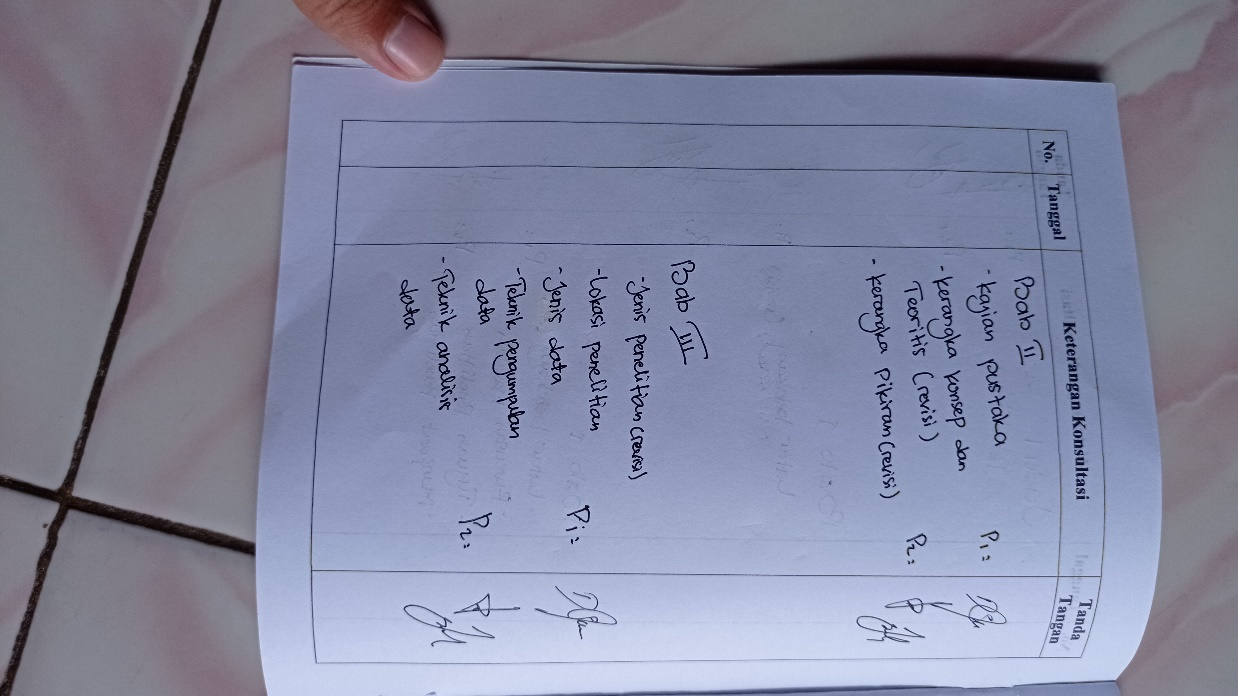 No.
Tanggal
Keterangan Konsultasi
Tanda
Tangan
Bab II
- kajian pustaka
P1:
- kerangka konsep dan
Teoritis (revisi)
P2:
- kerangka pikiran (revisi)
Bab III
- Jenis penelitian (revisi)
- Lokasi penelitian
P1:
- Jenis data
- Teknik pengumpulan
data
P2:
- Teknik analisis
data